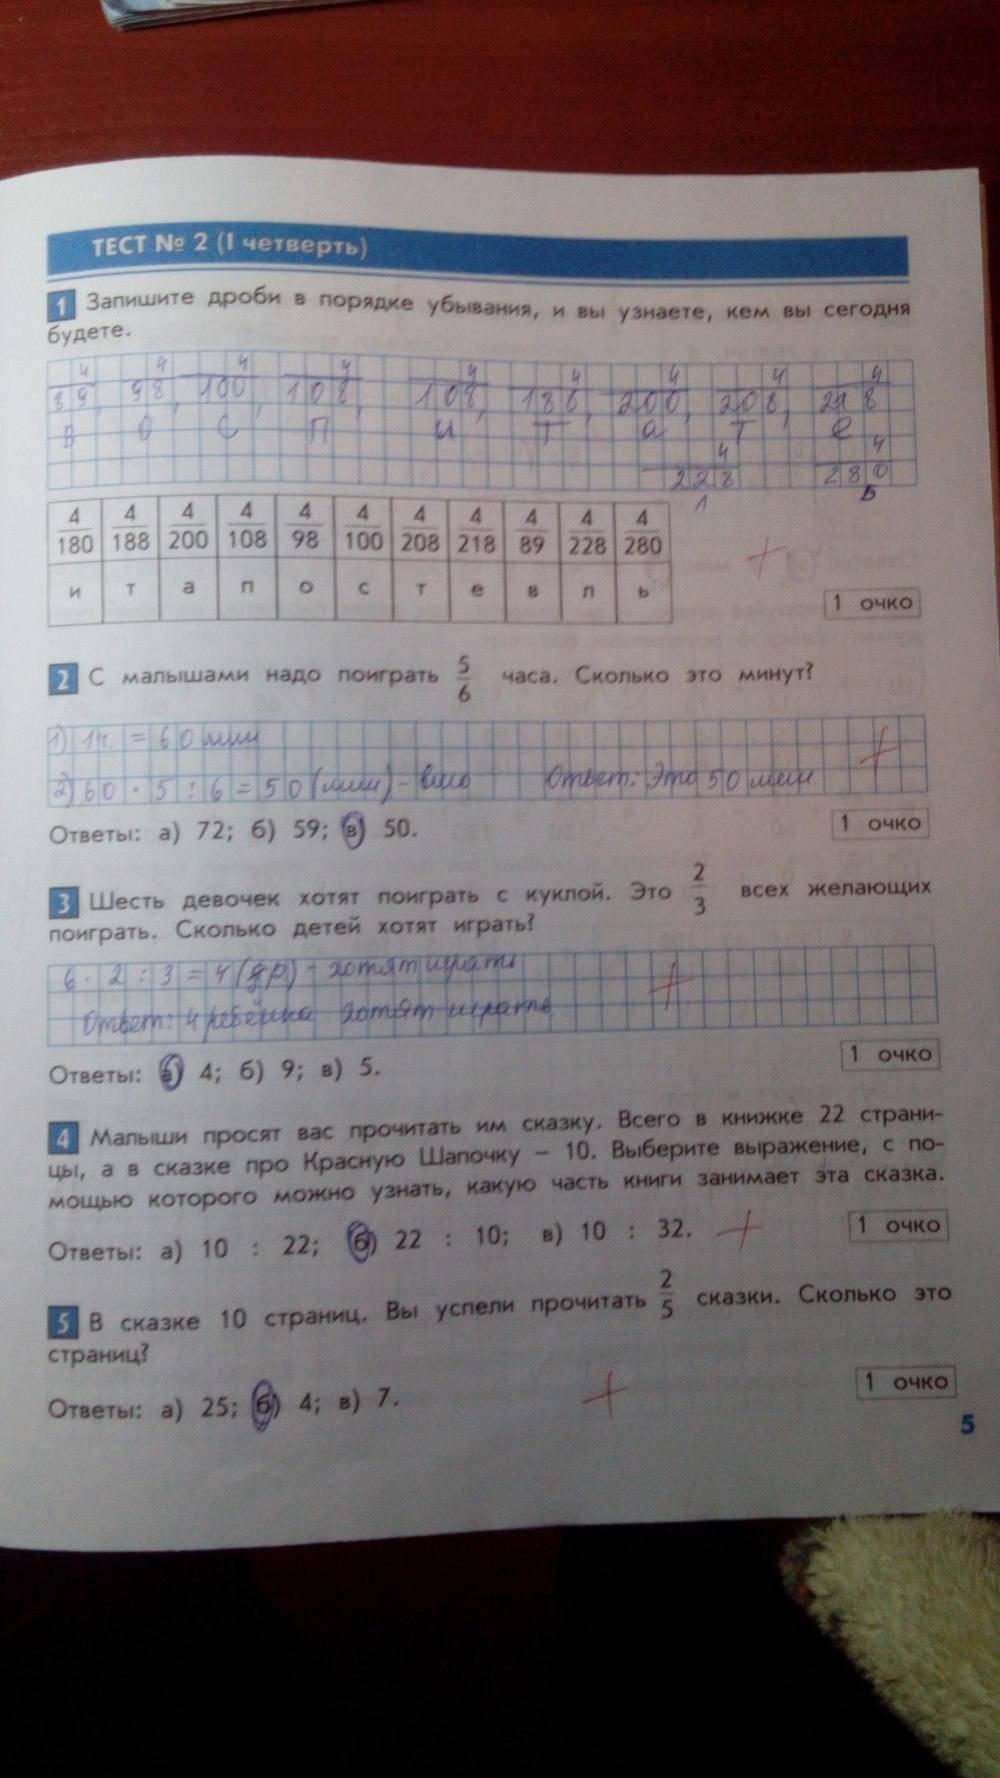 ТЕСТ № 2 (I четверть)
1 Запишите дроби в порядке убывания, и вы узнаете, кем вы сегодня
будете.
4 4 4 4 4 4 4 4 4
89, 98, 100, 108, 108, 188, 200, 208, 218
в о с п и т а т е
4 4
228 280
л ь
4 4 4 4 4 4 4 4 4 4 4
180 188 200 108 98 100 208 218 89 228 280
и т а п о с т е в л ь
1 очко
2 С малышами надо поиграть 5/6 часа. Сколько это минут?
1) 1ч. = 60 мин
2) 60 · 5 : 6 = 50 (мин) - Ответ: Это 50 мин.
Ответы: а) 72; б) 59; в) 50.
1 очко
3 Шесть девочек хотят поиграть с куклой. Это 2/3 всех желающих
поиграть. Сколько детей хотят играть?
6 · 2 : 3 = 4 (др) - хотят играть
Ответ: 4 ребёнка хотят играть
Ответы: а) 4; б) 9; в) 5.
1 очко
4 Малыши просят вас прочитать им сказку. Всего в книжке 22 страни-
цы, а в сказке про Красную Шапочку – 10. Выберите выражение, с по-
мощью которого можно узнать, какую часть книги занимает эта сказка.
Ответы: а) 10 : 22; б) 22 : 10; в) 10 : 32.
1 очко
5 В сказке 10 страниц. Вы успели прочитать 2/5 сказки. Сколько это
страниц?
Ответы: а) 25; б) 4; в) 7.
1 очко
5